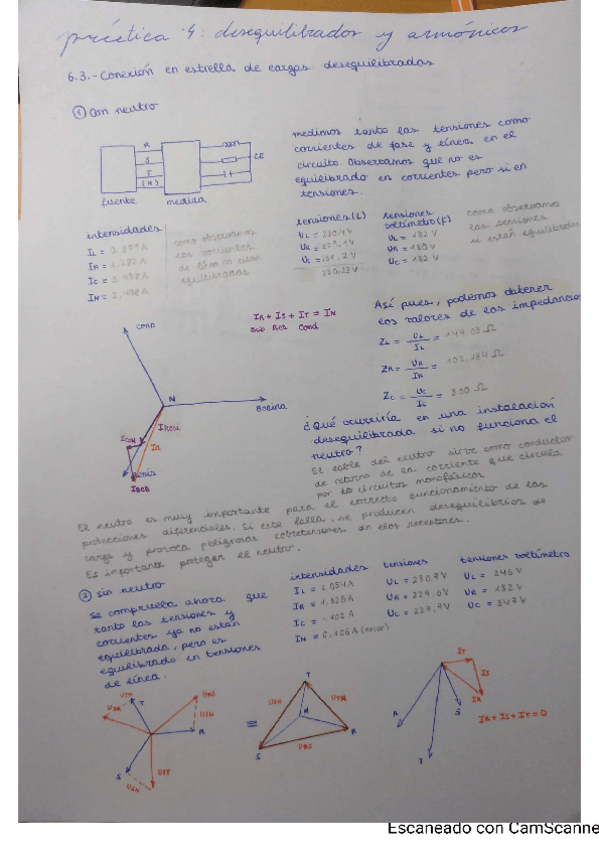 práctica 4: desequilibrados y armónicos
6.3.- Conexión en estrella de cargas desequilibradas
① con neutro
R
S
T
(N)
fuente
medida
medimos tanto las tensiones como
corrientes de fase y línea en el
circuito. Observamos que no es
equilibrado en corrientes pero si en
tensiones.
intensidades
IL =
IR =
IC =
IN =
como observamos
las corrientes
de línea no están
equilibradas
tensiones(L)
UL = 230.4V
UR =
UC = 231,2 V
tensiones
voltímetro (F)
UL = 132 V
UR = 130V
UC = 132 V
como observamos
las tensiones
si están equilibradas
IR + IS + IT = IN
Así pues, podemos obtener
los valores de las impedancias
ZL = UL / IL = 149.03 Ω
ZR = UR / IR =
ZC = UC / IC = 300 Ω
cond
N
Bobina
¿Qué ocurriría en una instalación
desequilibrada si no funciona el
neutro?
El cable del neutro sirve como conductor
de retorno de la corriente que circula
por los circuitos monofásicos
El neutro es muy importante para el correcto funcionamiento de las
protecciones diferenciales. Si este falla, se producen desequilibrios de
carga y provoca peligrosas sobretensiones en los receptores.
Es importante proteger el neutro.
② sin neutro
Se comprueba ahora que
tanto las tensiones y
corrientes ya no están
equilibrada, pero es
equilibrado en tensiones
de línea.
intensidades
IL = 1,054A
IR = 1.325A
IC = 1.102 A
IN = 0,106A (error)
tensiones
UL = 230.7V
UR = 229,6V
UC = 229,9V
tensiones voltímetro
UL =
UR = 132 V
UC = 347V
T
URS
R
S
UST
≡
T
UTR
N
R
S
URS
IT
IS
IR
R
S
T
IR + IS + IT = 0
Escaneado con CamScanne